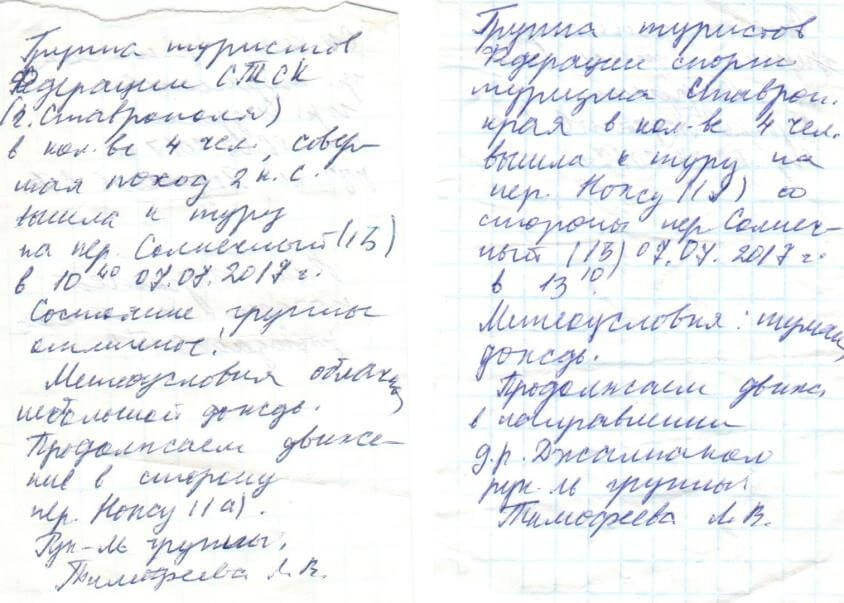 Группа туристов
Федерации СТСК
(г. Ставрополя)
в кол-ве 4 чел., совер-
шая поход 2 к.с.
вышла к туру
на пер. Солнечный (1Б)
в 10 40 07.07.2017 г.
Состояние группы
отличное!
Метеоусловия облачн,
небольшой дождь.
Продолжаем движе-
ние в сторону
пер. Ноксу (1а).
Рук-ль группы,
Тимофеева Л.В.
Группа туристов
Федерации спорт.
туризма Ставроп.
края в кол-ве 4 чел.
вышла к туру на
пер. Ноксу () со
стороны пер. Солнеч-
ный (1Б) 07.07.2017 г.
в 13 10.
Метеоусловия: туман,
дождь.
Продолжаем движ.
в направлении
д.р. Джалпакол
рук-ль группы
Тимофеева Л.В.